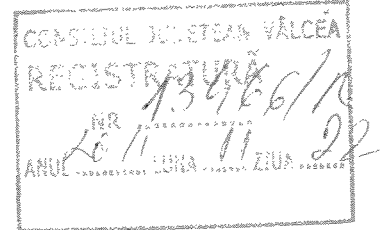 CONSILIUL JUDEȚEAN VÂLCEA
REGISTRATURĂ
NR 13466/
ANUL 2011 LUNA 11 ZIUA 22